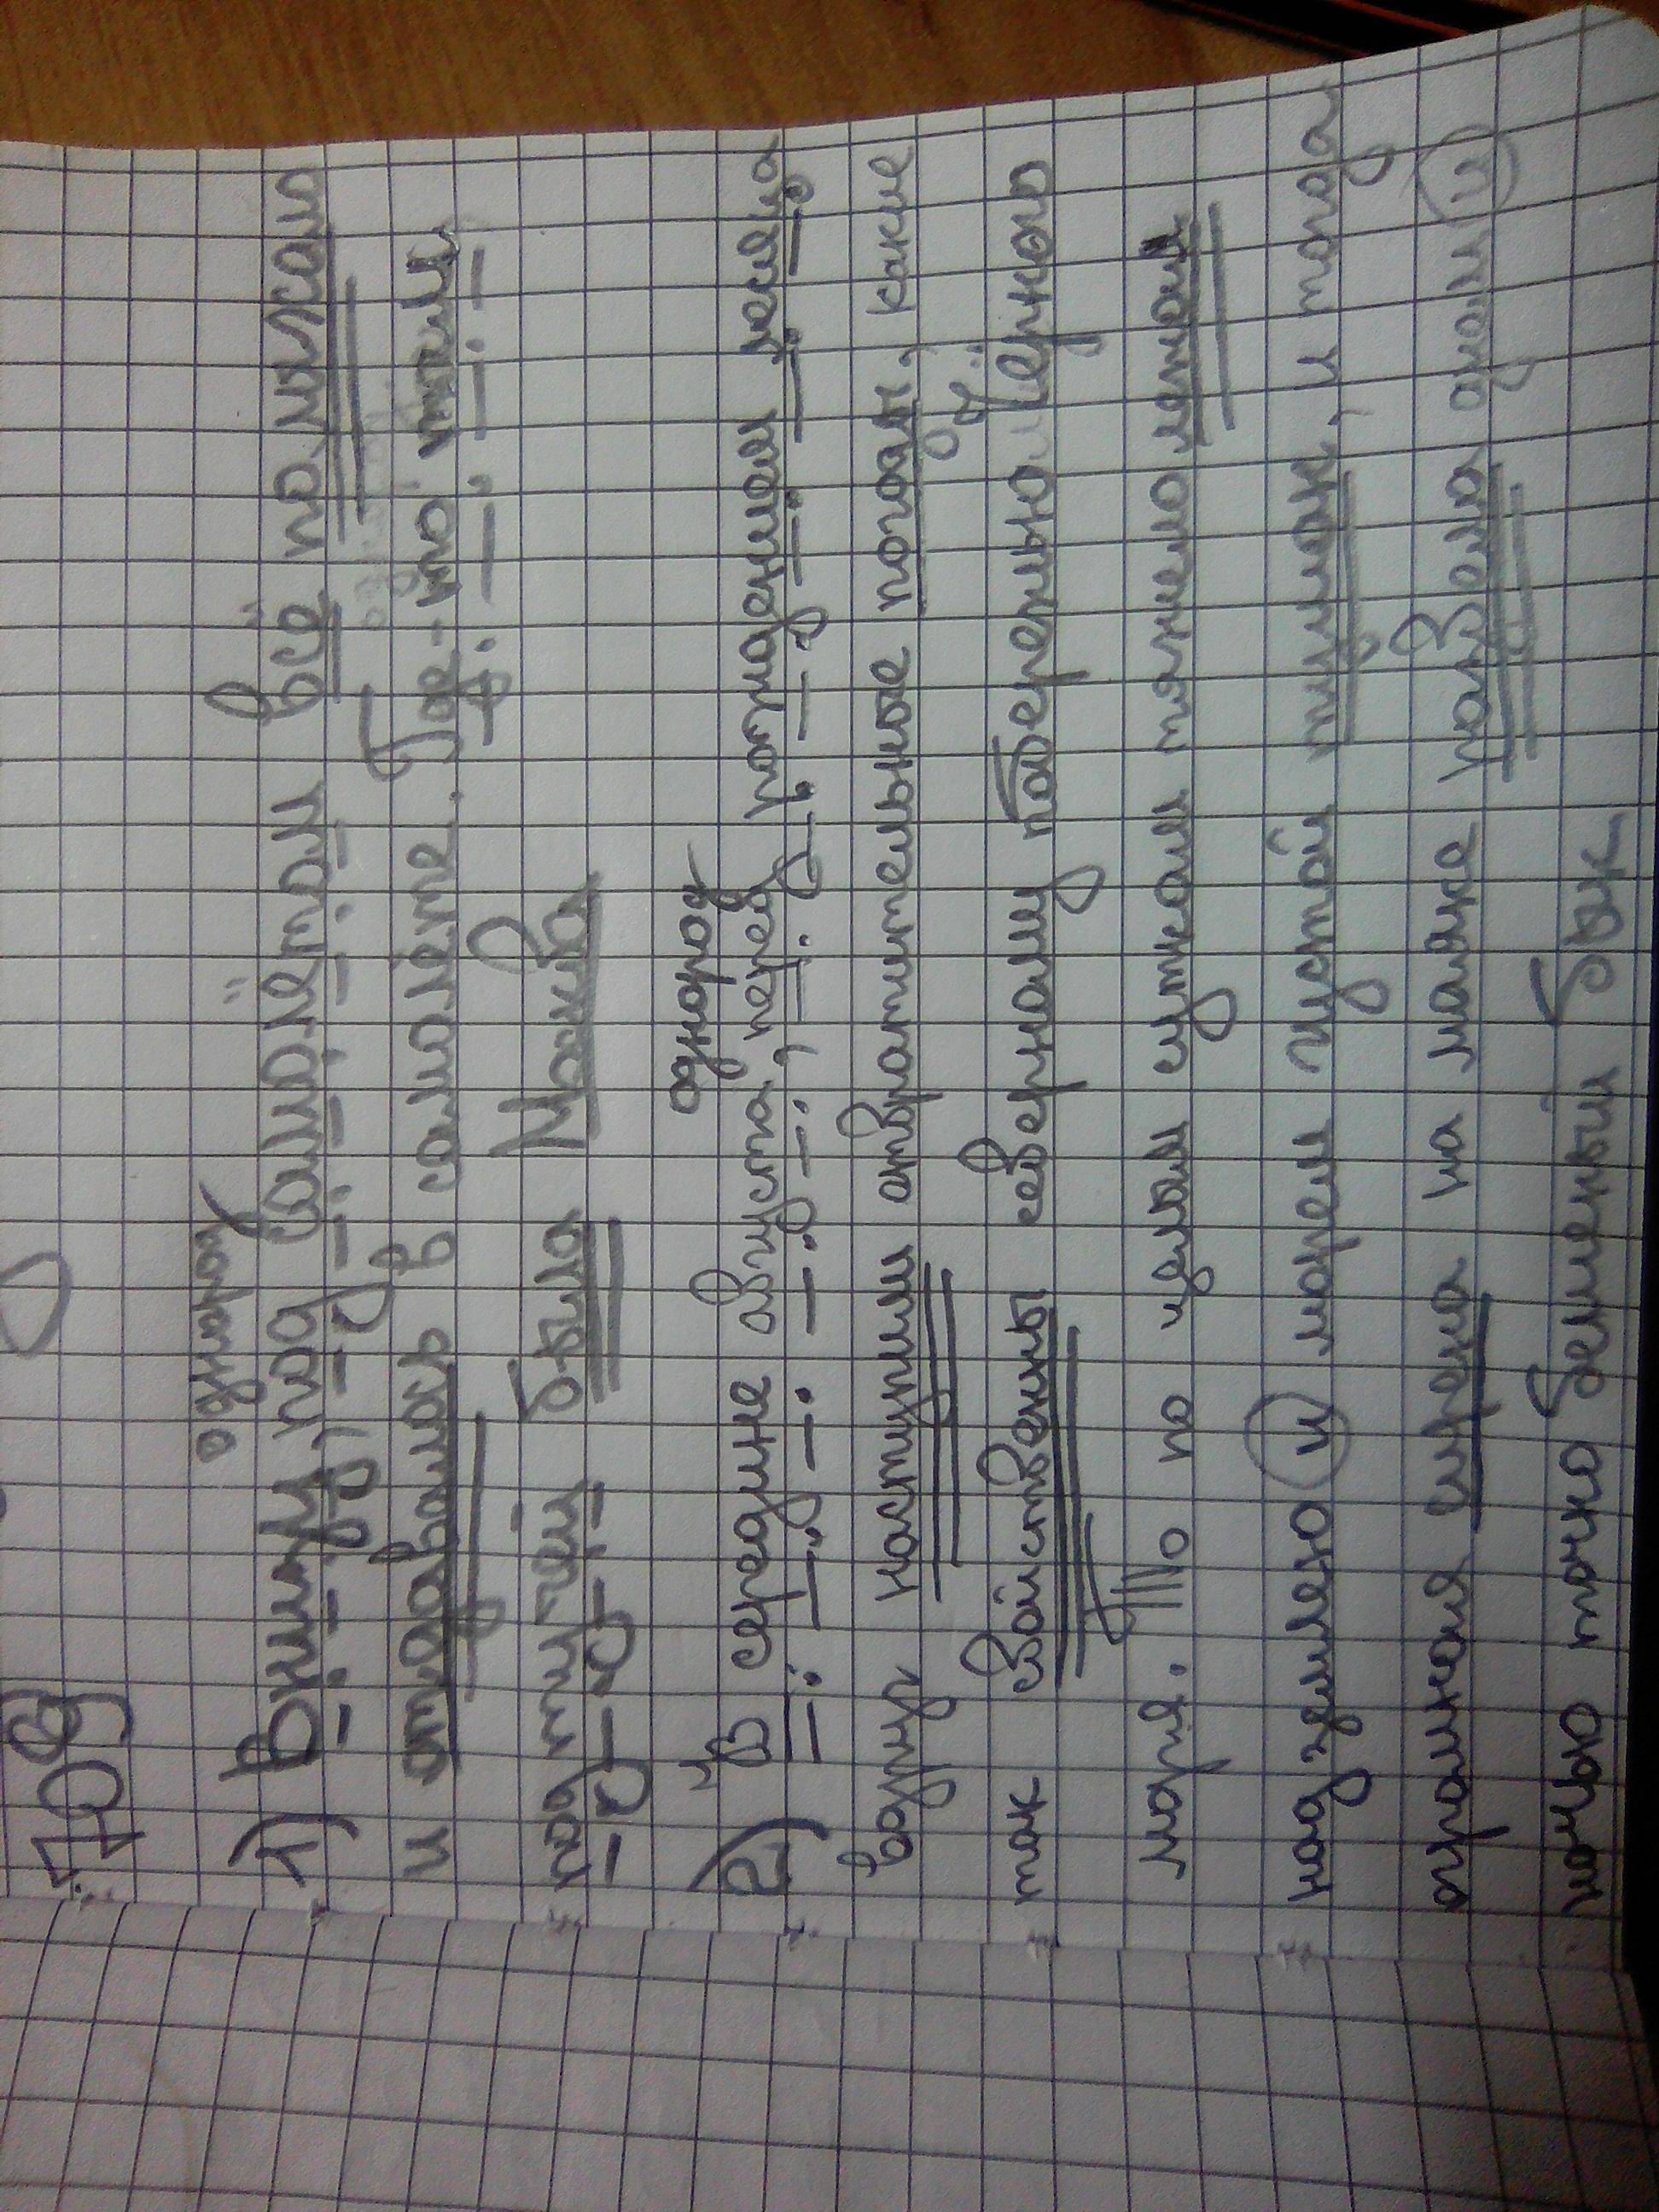 709
однород
1) Внизу, под самолётом всё полыхало
и отдавалось в самолете. Где-то, ниже
под тучей была Москва
однород
2) В середине августа, перед рождением месяца
вдруг наступили отвратительные погоды, какие
так свойственны северному побережью Черного
моря. То по целым суткам тяжело лежал
над землею и морем густой туман, и тогда
огромная сирена на маяке ревела днем и
ночью точно бешеный бык